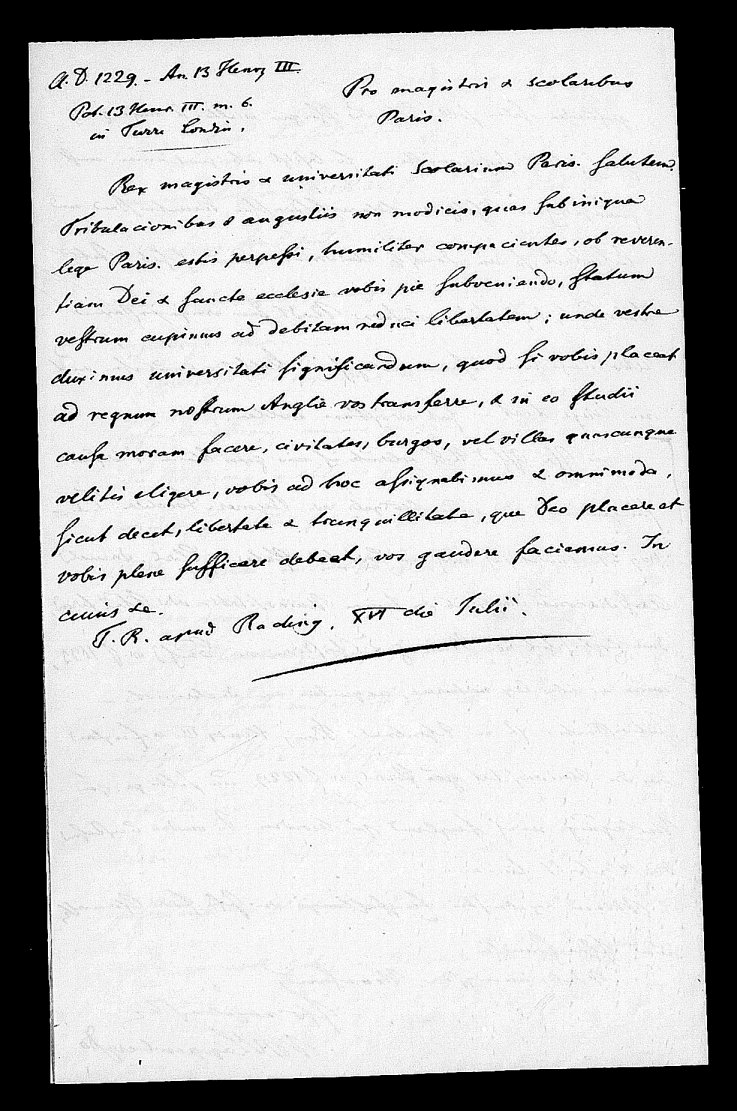 A. D. 1229. - An. 13 Henrz III.
Pro magistris & scolaribus
Pat. 13 Henr. III. m. 6.
Paris.
in Turri Londin.
Rex magistris & universitati Scolarium Paris. salutem.
Tribulacionibus & angustiis non modicis, quas sub iniqua
lege Paris. estis perpessi, humiliter compacientes, ob reveren-
tiam Dei & sancte ecclesie vobis pie subveniendo, statum
vestrum cupimus ad debitam reduci libertatem; unde vestre
duximus universitati significandum, quod si vobis placeat
ad regnum nostrum Anglie vos transferre, & in eo studii
causa moram facere, civitates, burgos, vel villas quascunque
velitis eligere, vobis ad hoc assignabimus & omnimoda,
sicut decet, libertate & tranquillitate, que Deo placere et
vobis plene sufficere debeat, vos gaudere faciemus. In
cuius &c.
T. R. apud Rading, XVI die Julii.